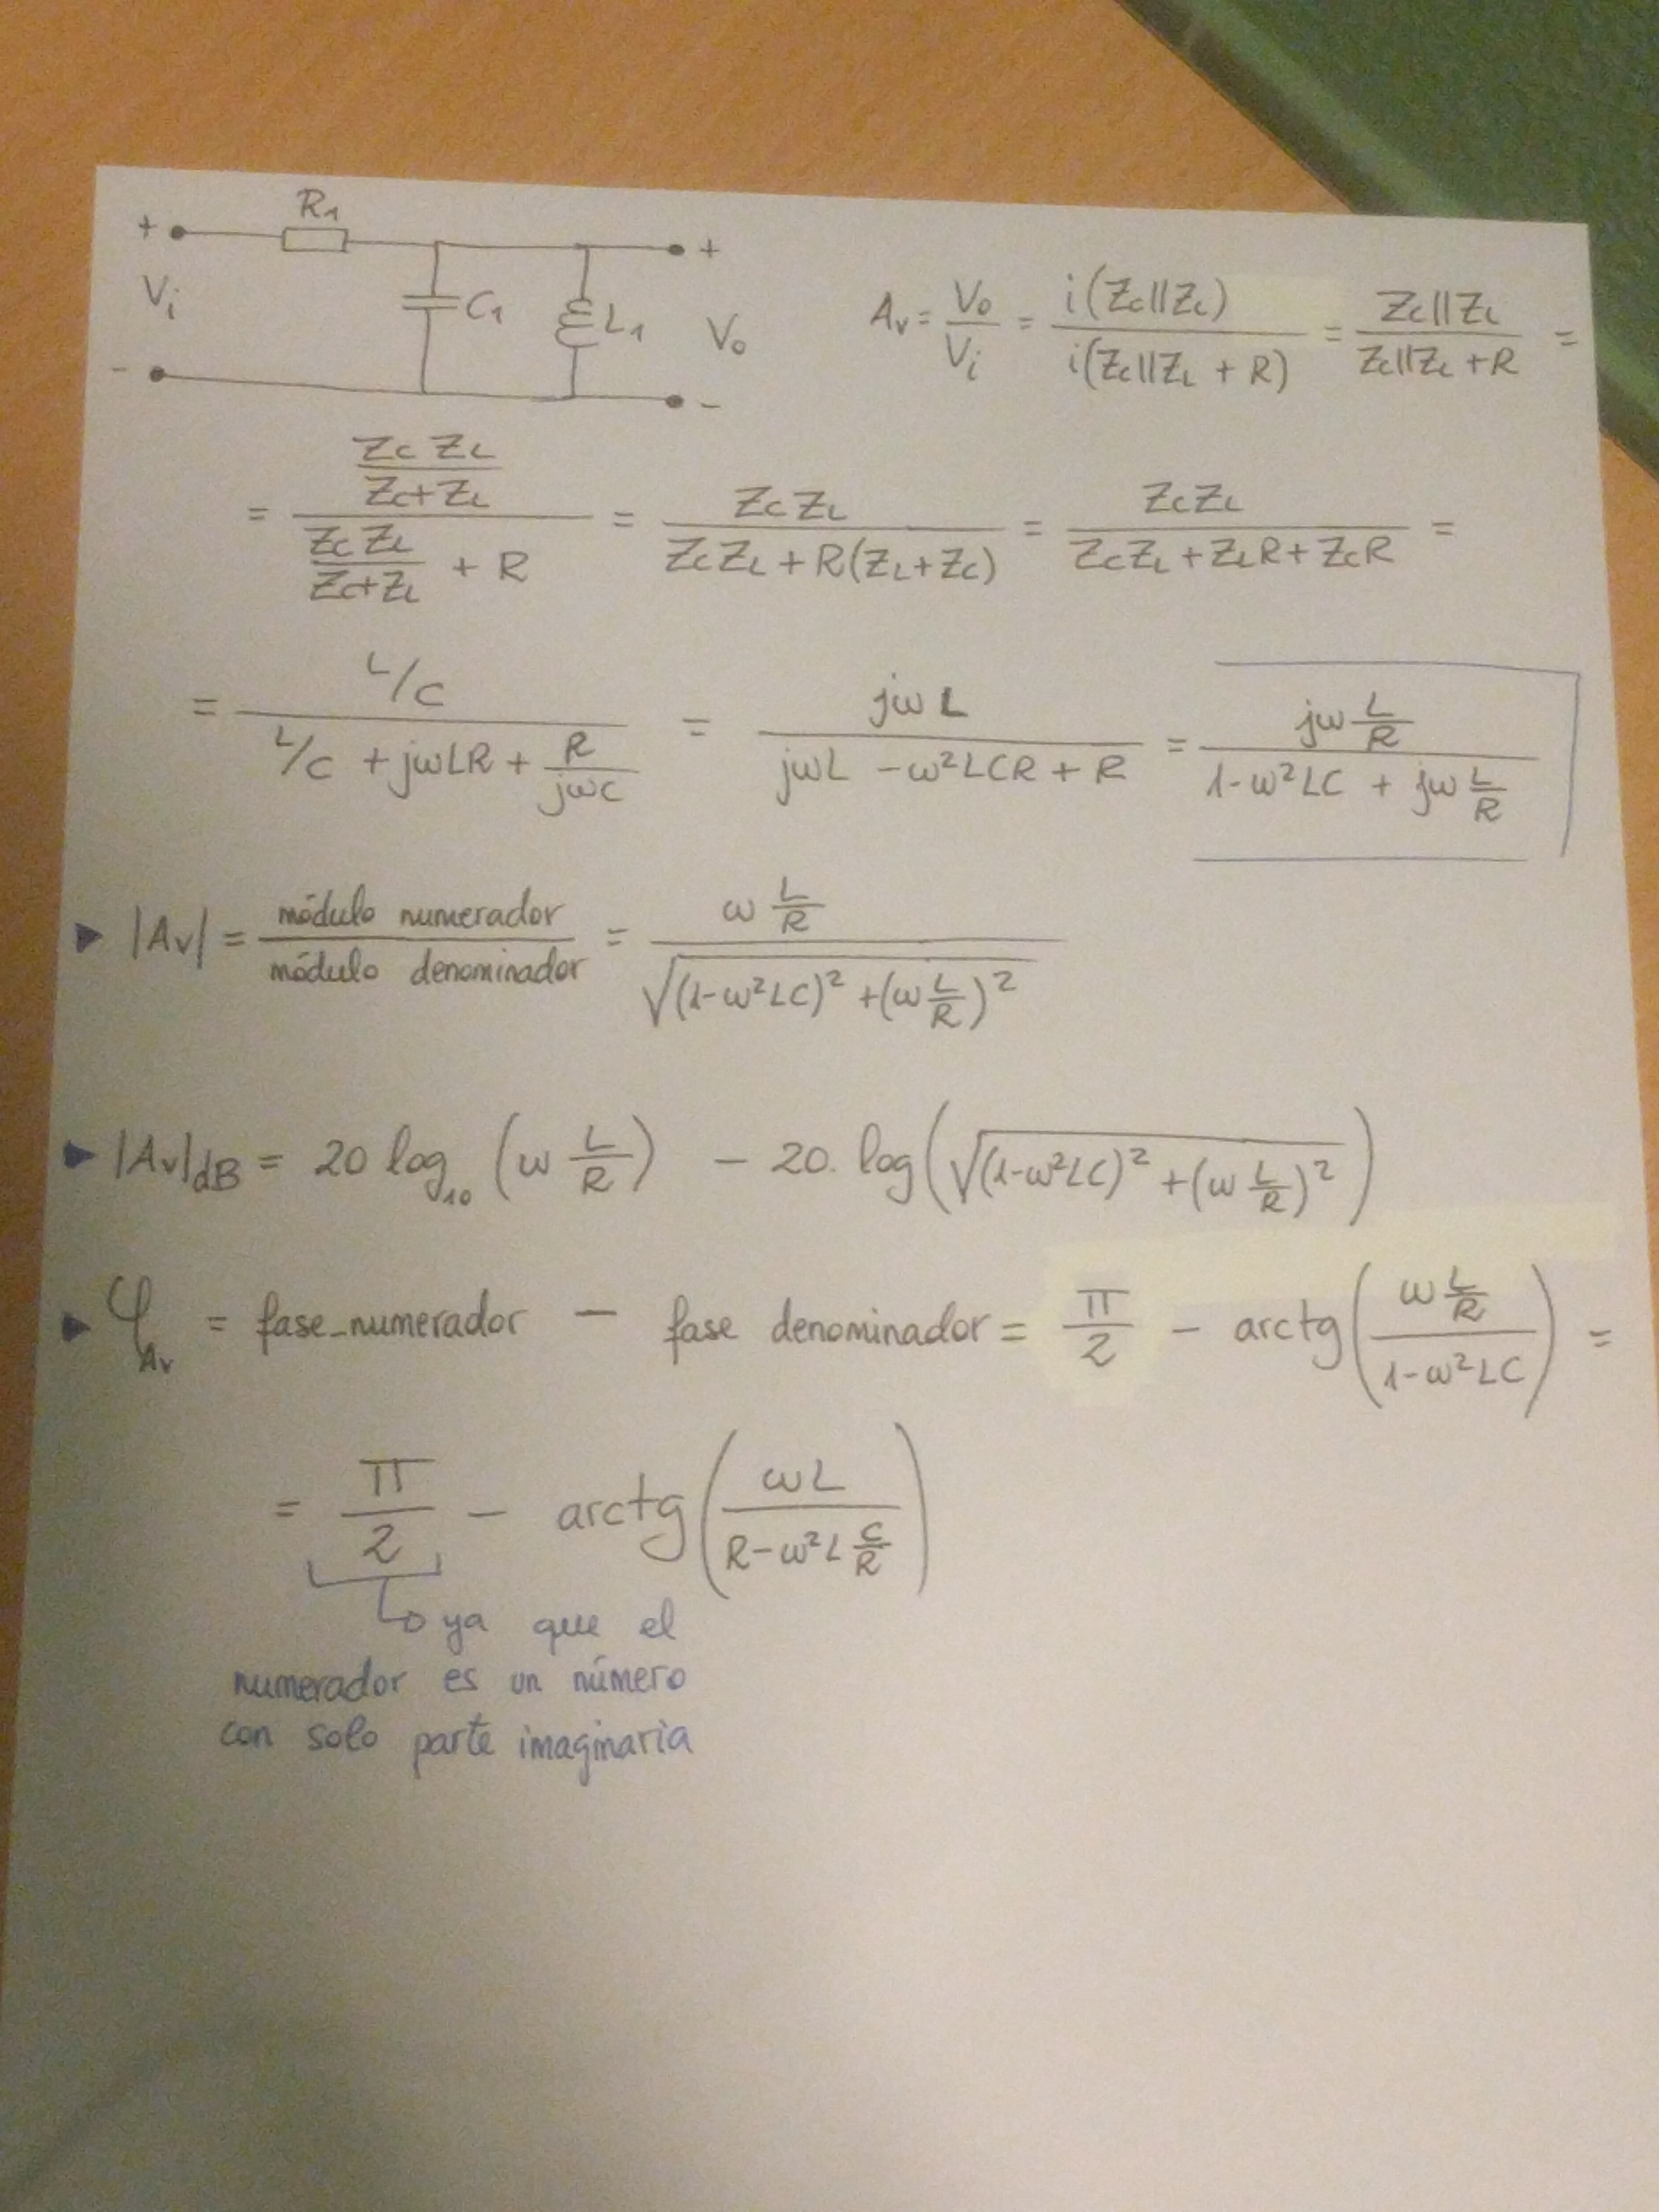 R1
+ +
Vi C1 L1 Vo
- -
Av = Vo/Vi = i(Zc||ZL) / i(Zc||ZL + R) = Zc||ZL / Zc||ZL + R =
= (Zc ZL / Zc+ZL) / (Zc ZL / Zc+ZL + R) = Zc ZL / Zc ZL + R(ZL+Zc) = Zc ZL / Zc ZL + ZL R + Zc R =
= L/C / L/C + jωLR + R/jωC = jωL / jωL - ω²LCR + R = jω L/R / 1-ω²LC + jω L/R
► |Av| = módulo numerador / módulo denominador = ω L/R / √(1-ω²LC)² + (ω L/R)²
► |Av|dB = 20 log10 (ω L/R) - 20. log(√(1-ω²LC)² + (ω L/R)²)
► φAv = fase numerador - fase denominador = π/2 - arctg(ω L/R / 1-ω²LC) =
= π/2 - arctg(ωL / R-ω²L C/R)
ya que el
numerador es un número
con solo parte imaginaria